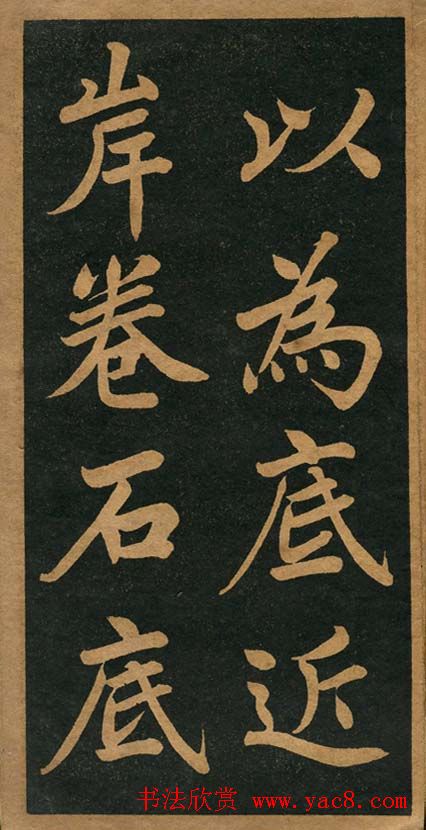 以為底近
岸卷石底
书法欣赏 www.yac8.com